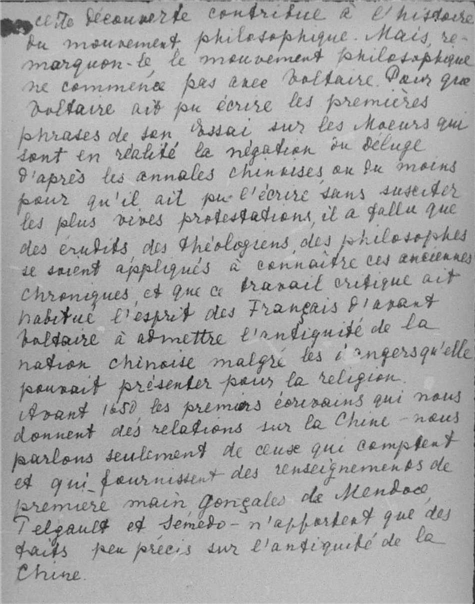 cette découverte contribue à l'histoire
du mouvement philosophique. Mais, re-
marquon-le le mouvement philosophique
ne commence pas avec Voltaire. Pour que
Voltaire ait pu écrire les premières
phrases de son Essai sur les Moeurs qui
sont en réalité la négation du déluge
d'après les annales chinoises ou du moins
pour qu'il ait pu l'écrire sans susciter
les plus vives protestations, il a fallu que
des érudits des théologiens, des philosophes
se soient appliqués à connaître ces anciennes
chroniques, et que ce travail critique ait
habitué l'esprit des Français d'avant
Voltaire à admettre l'antiquité de la
nation chinoise malgré les dangers qu'elle
pouvait présenter pour la religion.
Avant 1650 les premiers écrivains qui nous
donnent des relations sur la Chine - nous
parlons seulement de ceux qui comptent
et qui fournissent des renseignements de
première main Gonçales de Mendoce,
Telgault et Semédo - n'apportent que des
faits peu précis sur l'antiquité de la
Chine.